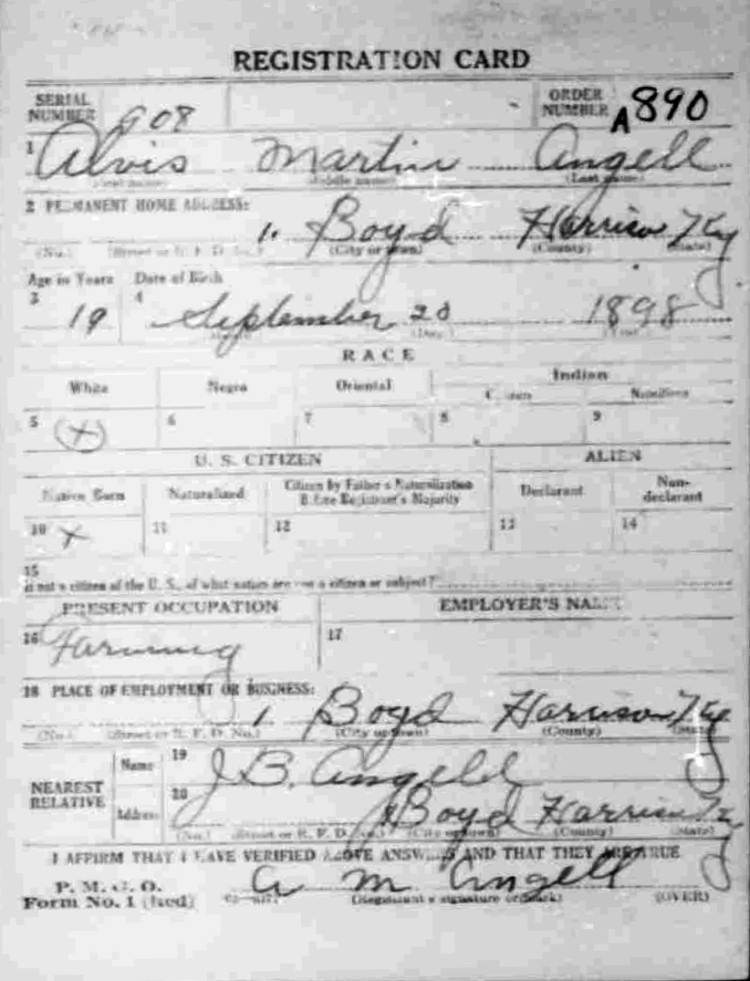 REGISTRATION CARD
SERIAL NUMBER 908 ORDER NUMBER A890
1 Alvis Martin Angell
(First name) (Middle name) (Last name)
2 PERMANENT HOME ADDRESS:
1. Boyd Harrison Ky
(No.) (Street or R. F. D. No.) (City or town) (County) (State)
Age in Years Date of Birth
3 19 4 September 20 1898
(Month) (Day) (Year)
RACE
White Negro Oriental Indian
Citizen Noncitizen
5 (X) 6 7 8 9
U. S. CITIZEN ALIEN
Native Born Naturalized Citizen by Father's Naturalization Before Registrant's Majority Declarant Non-declarant
10 X 11 12 13 14
15
If not a citizen of the U. S., of what nation are you a citizen or subject?
PRESENT OCCUPATION EMPLOYER'S NAME
16 Farming 17
18 PLACE OF EMPLOYMENT OR BUSINESS:
1. Boyd Harrison Ky
(No.) (Street or R. F. D. No.) (City or town) (County) (State)
NEAREST RELATIVE Name 19 J B. Angell
Address 20 Boyd Harrison Ky
(No.) (Street or R. F. D. No.) (City or town) (County) (State)
I AFFIRM THAT I HAVE VERIFIED ABOVE ANSWERS AND THAT THEY ARE TRUE
P. M. G. O.
Form No. 1 (Red) A M Angell
(Registrant's signature or mark) (OVER)